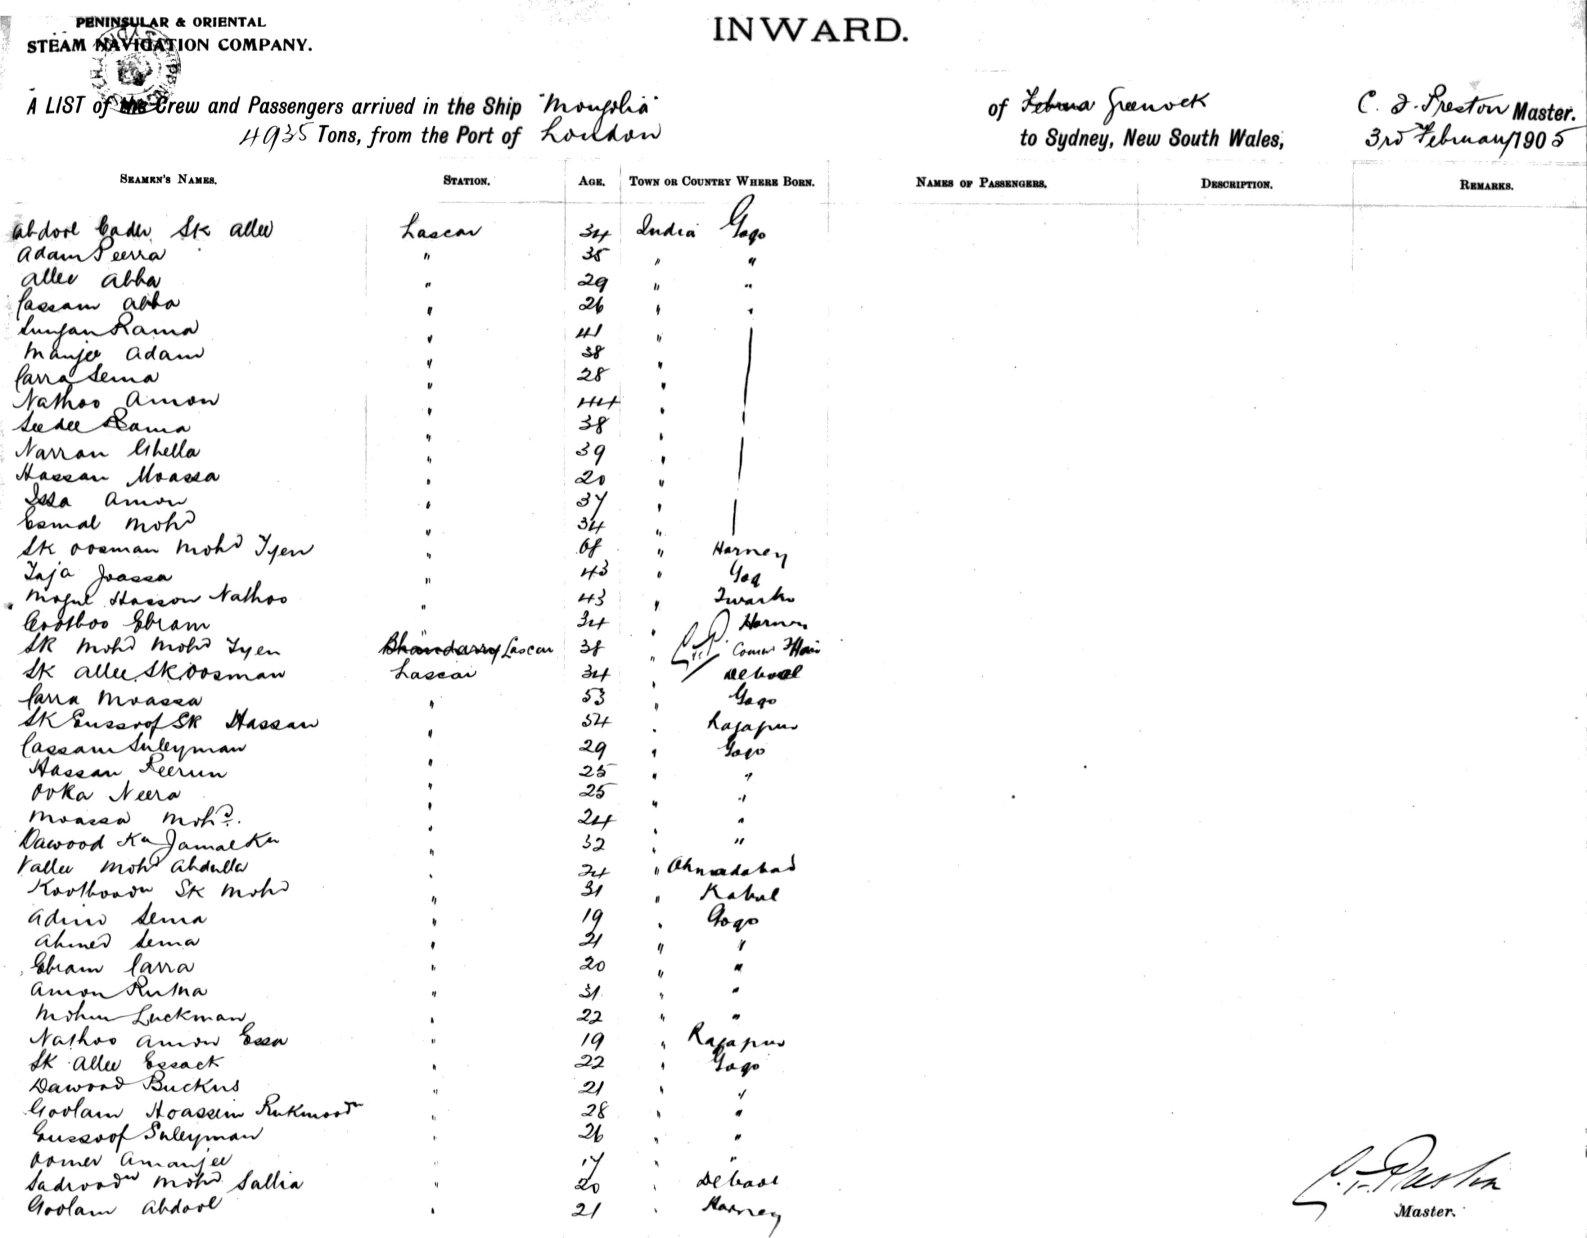 PENINSULAR & ORIENTAL
STEAM NAVIGATION COMPANY.
INWARD.
A LIST of the Crew and Passengers arrived in the Ship "Mongolia" of Greenock C. F. Preston Master.
4935 Tons, from the Port of London to Sydney, New South Wales, 3rd February 1905
SEAMEN'S NAMES. STATION. AGE. TOWN OR COUNTRY WHERE BORN. NAMES OF PASSENGERS. DESCRIPTION. REMARKS.
Abdool Cader SK Allee Lascar 34 India Gogo
Adam Peerra " 35 " "
Allee Abba " 29 " "
Cassam Abba " 26 " "
Rama " 41 "
Manjee Adam " 38 "
Carra Sema " 28 "
Nathoo Amon " 44 "
Seedee Rama " 38 "
Narran Ghella " 39 "
Hassan Moassa " 20 "
Issa Amon " 37 "
Esmal Mohd " 34 "
SK Oosman Mohd Tyen " " Harney
Jaja Joassa " 43 " Gog
Mogul Hasson Nathoo " 43 "
Cootboo Ebram " 34 "
SK Mohd Mohd Tyen Bhandarry Lascar 38 " C.F.P.
SK Allee SK Oosman Lascar 34 " Debool
Carra Moassa " 53 Gogo
SK Eussoof SK Hassan " 54 " Rajapur
Cassam Suleyman " 29 " Gogo
Hassan Peerun " 25 " "
Ooka Neera " 25 " "
Moassa Mohd. " 24 " "
Dawood Kn Jamal Kn " 32 " "
Vallee Mohd Abdulla " 24 " Ahmadabad
Kootboodn SK Mohd 31 " Kabul
Adum Sema " 19 " Gogo
Ahmed Sema " 21 " "
Ebram Carra " 20 " "
Amon Rutna " 31 " "
Luckman " 22 " "
Nathoo Amon Essa " 19 " Rajapur
SK Allee Essack " 22 " Gogo
Dawood Buckus " 21 " "
Goolam Hoassein Rukmoodn " 28 " "
Eussoof Suleyman " 26 " "
Oomer Amanjee " 17 " "
Sadroodn Mohd Sallia " 20 " Debool
Goolam Abdool " 21 " Harney
C. F. Preston
Master.